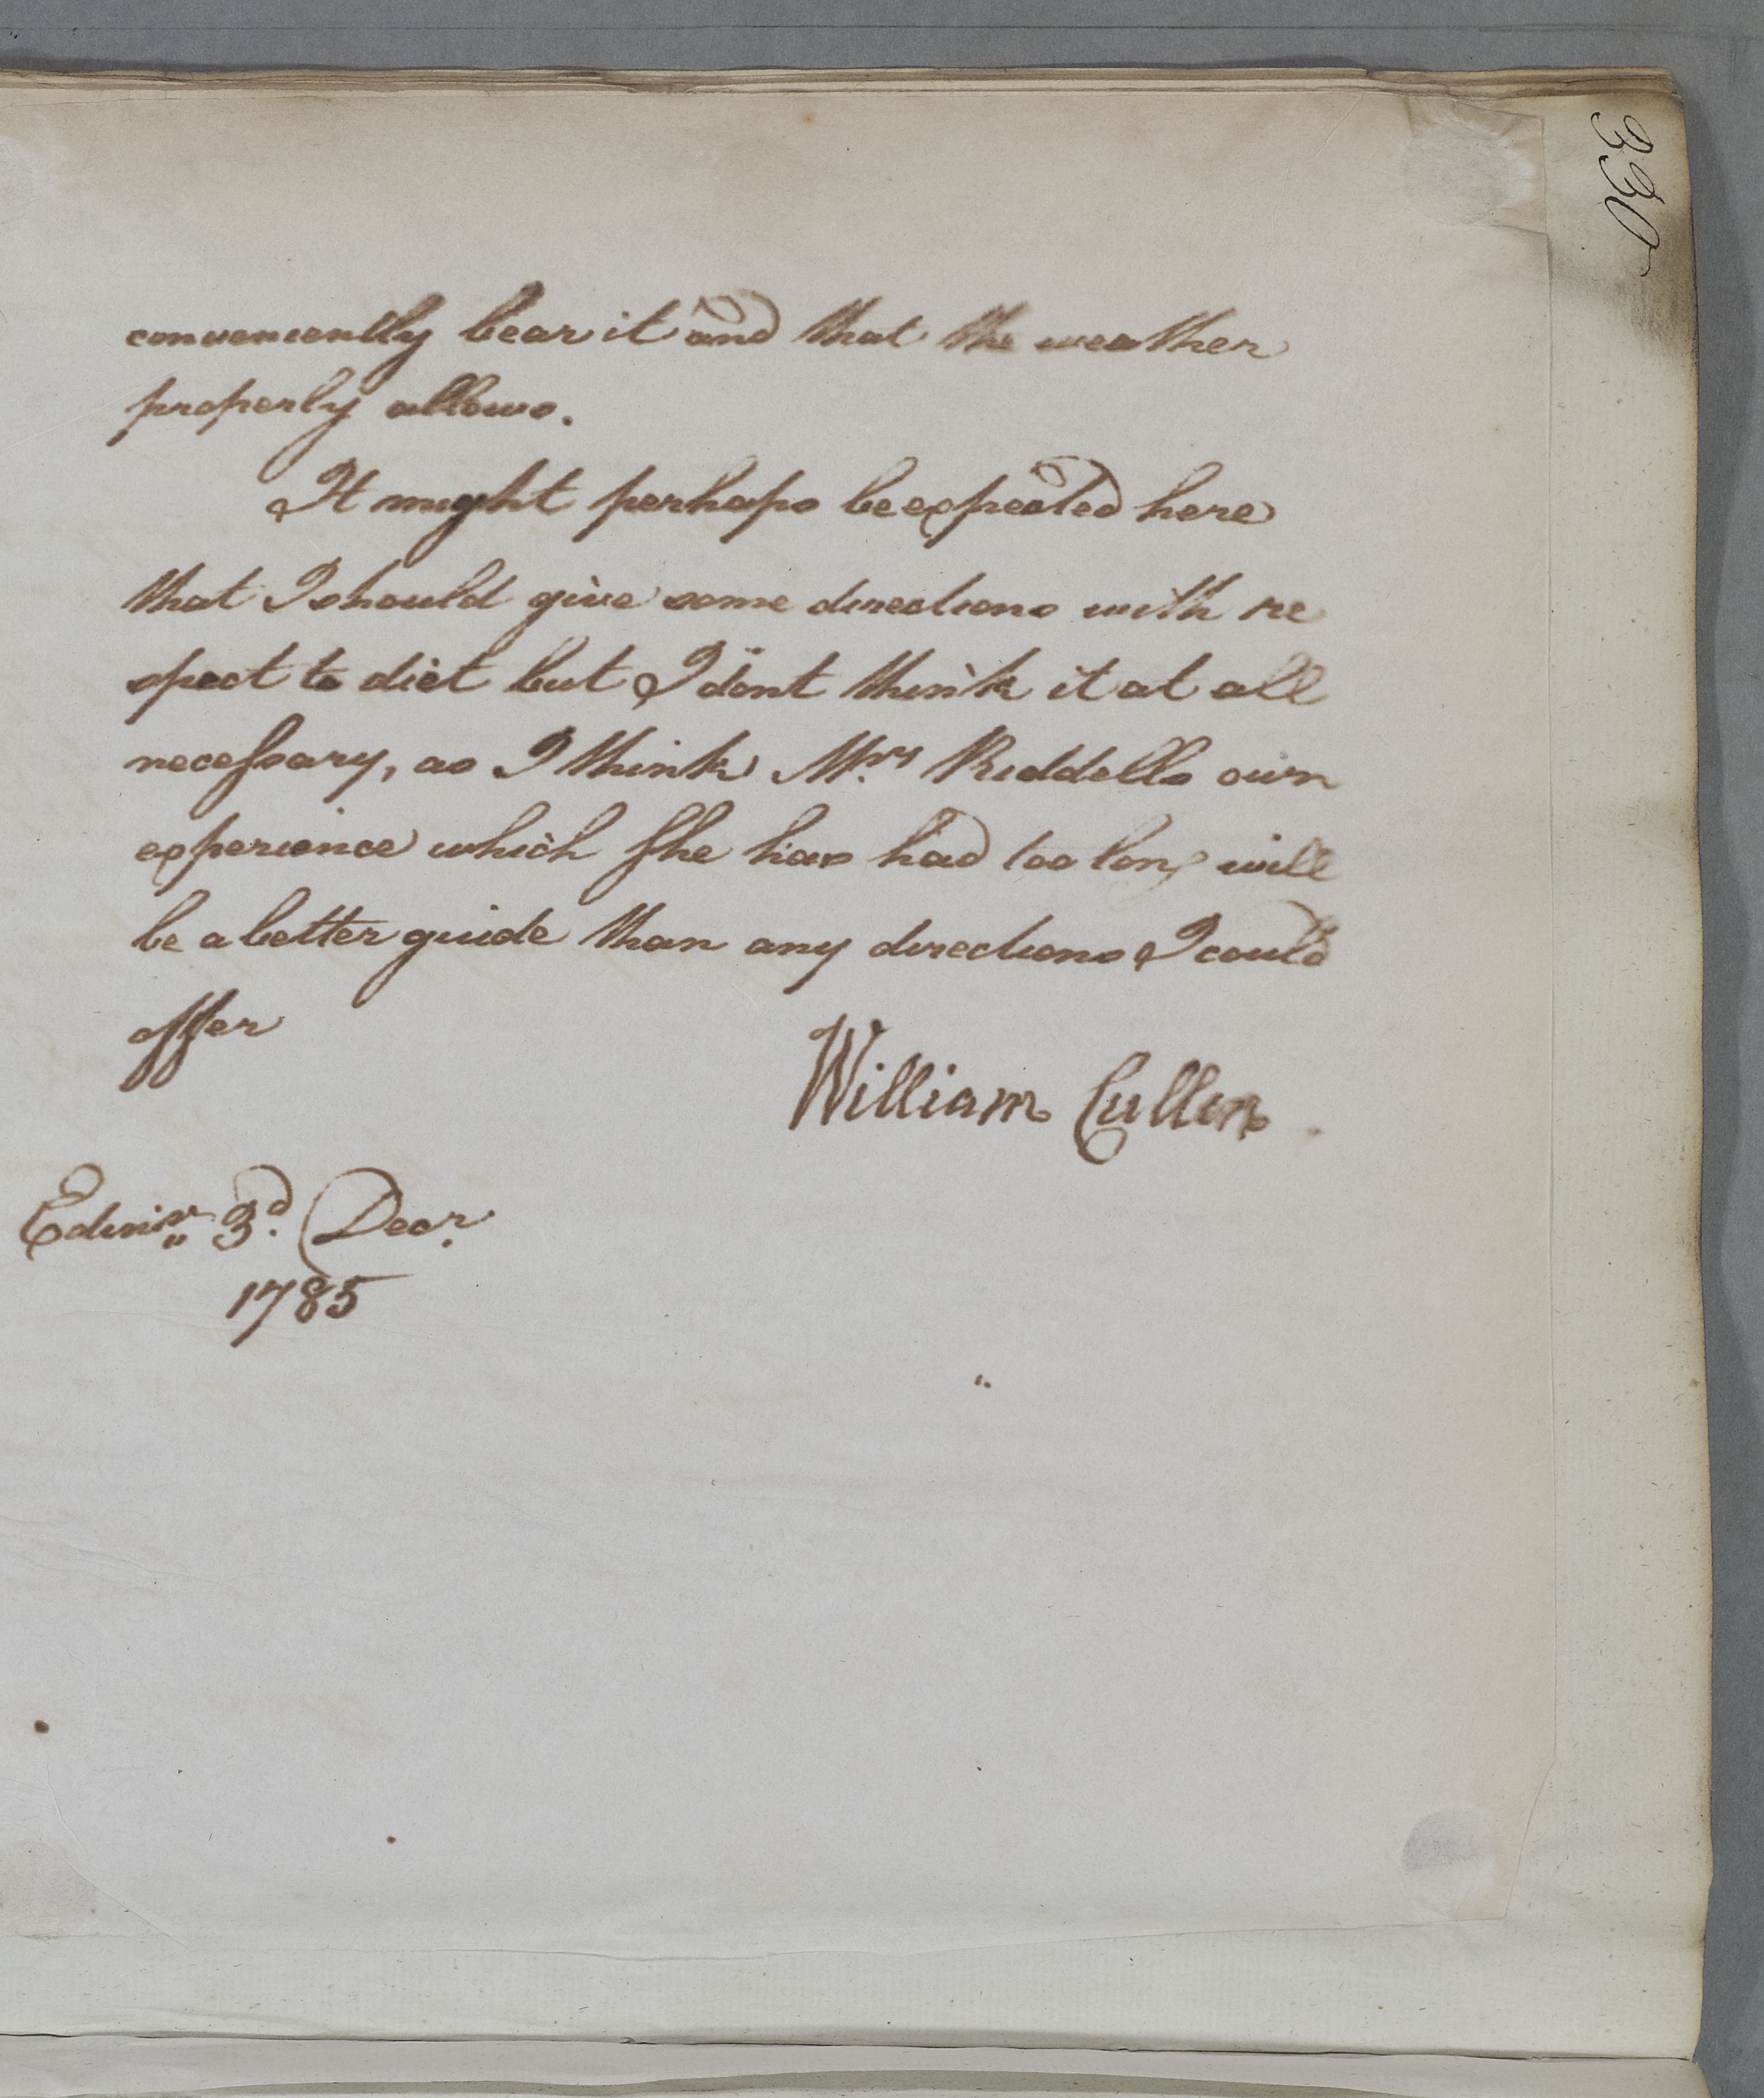 330
conveniently bear it and that the weather
properly allows.
It might perhaps be expected here
that I should give some directions with re
spect to diet but I dont think it at all
necessary, as I think Mrs Riddells own
experience which She has had too long will
be a better guide than any directions I could
offer
William Cullen.
Edinr. 3d. Decr.
1785